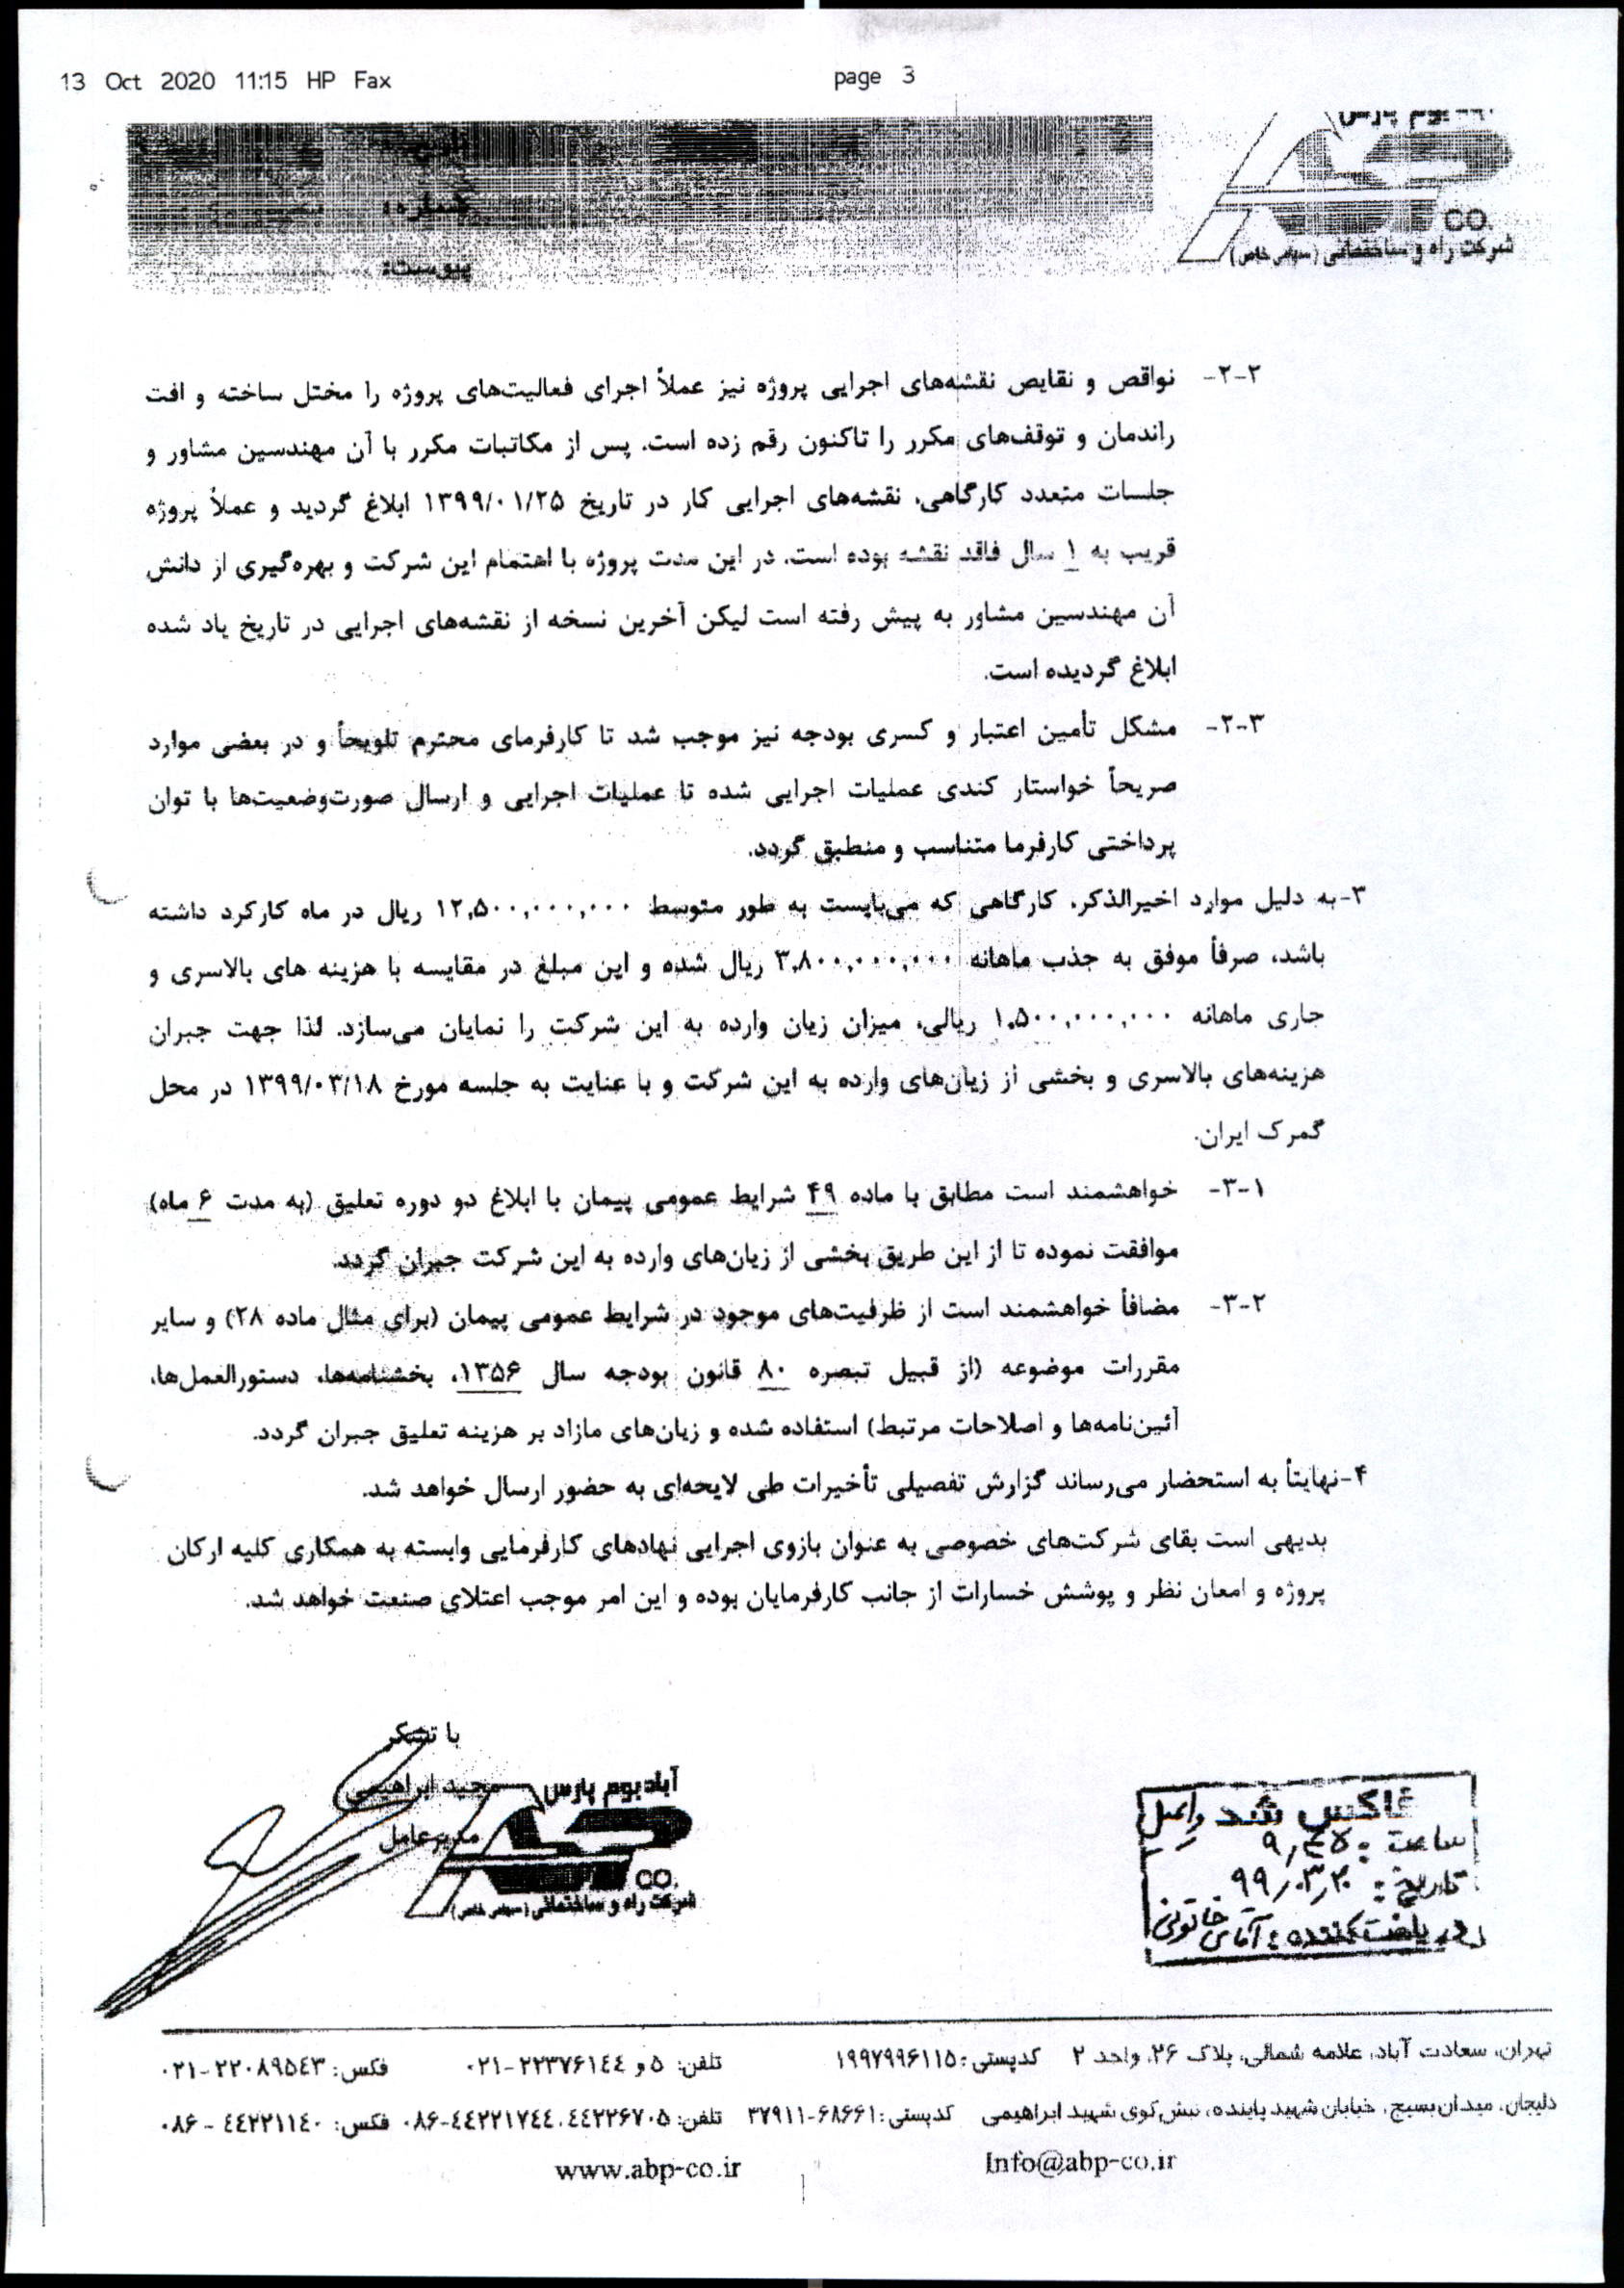 13 Oct 2020 11:15 HP Fax page 3
CO.
شرکت راه و ساختمانی (سهامی خاص)
شماره:
پیوست:
۲-۲- نواقص و نقایص نقشه‌های اجرایی پروژه نیز عملاً اجرای فعالیت‌های پروژه را مختل ساخته و افت
راندمان و توقف‌های مکرر را تاکنون رقم زده است. پس از مکاتبات مکرر با آن مهندسین مشاور و
جلسات متعدد کارگاهی، نقشه‌های اجرایی کار در تاریخ ۱۳۹۹/۰۱/۲۵ ابلاغ گردید و عملاً پروژه
قریب به ۱ سال فاقد نقشه بوده است. در این مدت پروژه با اهتمام این شرکت و بهره‌گیری از دانش
آن مهندسین مشاور به پیش رفته است لیکن آخرین نسخه از نقشه‌های اجرایی در تاریخ یاد شده
ابلاغ گردیده است.
۲-۳- مشکل تأمین اعتبار و کسری بودجه نیز موجب شد تا کارفرمای محترم تلویحاً و در بعضی موارد
صریحاً خواستار کندی عملیات اجرایی شده تا عملیات اجرایی و ارسال صورت‌وضعیت‌ها با توان
پرداختی کارفرما متناسب و منطبق گردد.
۳-به دلیل موارد اخیرالذکر، کارگاهی که می‌بایست به طور متوسط ۱۲,۵۰۰,۰۰۰,۰۰۰ ریال در ماه کارکرد داشته
باشد، صرفاً موفق به جذب ماهانه ۳,۸۰۰,۰۰۰,۰۰۰ ریال شده و این مبلغ در مقایسه با هزینه های بالاسری و
جاری ماهانه ۱,۵۰۰,۰۰۰,۰۰۰ ریالی، میزان زیان وارده به این شرکت را نمایان می‌سازد. لذا جهت جبران
هزینه‌های بالاسری و بخشی از زیان‌های وارده به این شرکت و با عنایت به جلسه مورخ ۱۳۹۹/۰۳/۱۸ در محل
گمرک ایران.
۳-۱- خواهشمند است مطابق با ماده ۴۹ شرایط عمومی پیمان با ابلاغ دو دوره تعلیق (به مدت ۶ ماه)
موافقت نموده تا از این طریق بخشی از زیان‌های وارده به این شرکت جبران گردد.
۳-۲- مضافاً خواهشمند است از ظرفیت‌های موجود در شرایط عمومی پیمان (برای مثال ماده ۲۸) و سایر
مقررات موضوعه (از قبیل تبصره ۸۰ قانون بودجه سال ۱۳۵۶، بخشنامه‌ها، دستورالعمل‌ها،
آئین‌نامه‌ها و اصلاحات مرتبط) استفاده شده و زیان‌های مازاد بر هزینه تعلیق جبران گردد.
۴-نهایتاً به استحضار می‌رساند گزارش تفصیلی تأخیرات طی لایحه‌ای به حضور ارسال خواهد شد.
بدیهی است بقای شرکت‌های خصوصی به عنوان بازوی اجرایی نهادهای کارفرمایی وابسته به همکاری کلیه ارکان
پروژه و امعان نظر و پوشش خسارات از جانب کارفرمایان بوده و این امر موجب اعتلای صنعت خواهد شد.
با تشکر
مجید ابراهیمی
مدیرعامل
آباد بوم پارس
CO.
شرکت راه و ساختمانی (سهامی خاص)
فاکس شد وایمیل
ساعت: ۹,۴۵
تاریخ: ۹۹,۰۳,۲۰
دریافت کننده: آقای خاتونی
تهران، سعادت آباد، علامه شمالی، پلاک ۲۶، واحد ۲ کدپستی: ۱۹۹۷۹۹۶۱۱۵ تلفن: ۵ و ۲۲۳۷۶۱۴۴-۰۲۱ فکس: ۲۲۰۸۹۵۴۳-۰۲۱
دلیجان، میدان بسیج، خیابان شهید پاینده، نبش کوی شهید ابراهیمی کدپستی: ۶۸۶۶۱-۳۷۹۱۱ تلفن: ۴۴۲۲۶۷۰۵، ۴۴۲۲۱۷۴۴-۰۸۶ فکس: ۴۴۲۲۱۱۴۰-۰۸۶
www.abp-co.ir Info@abp-co.ir